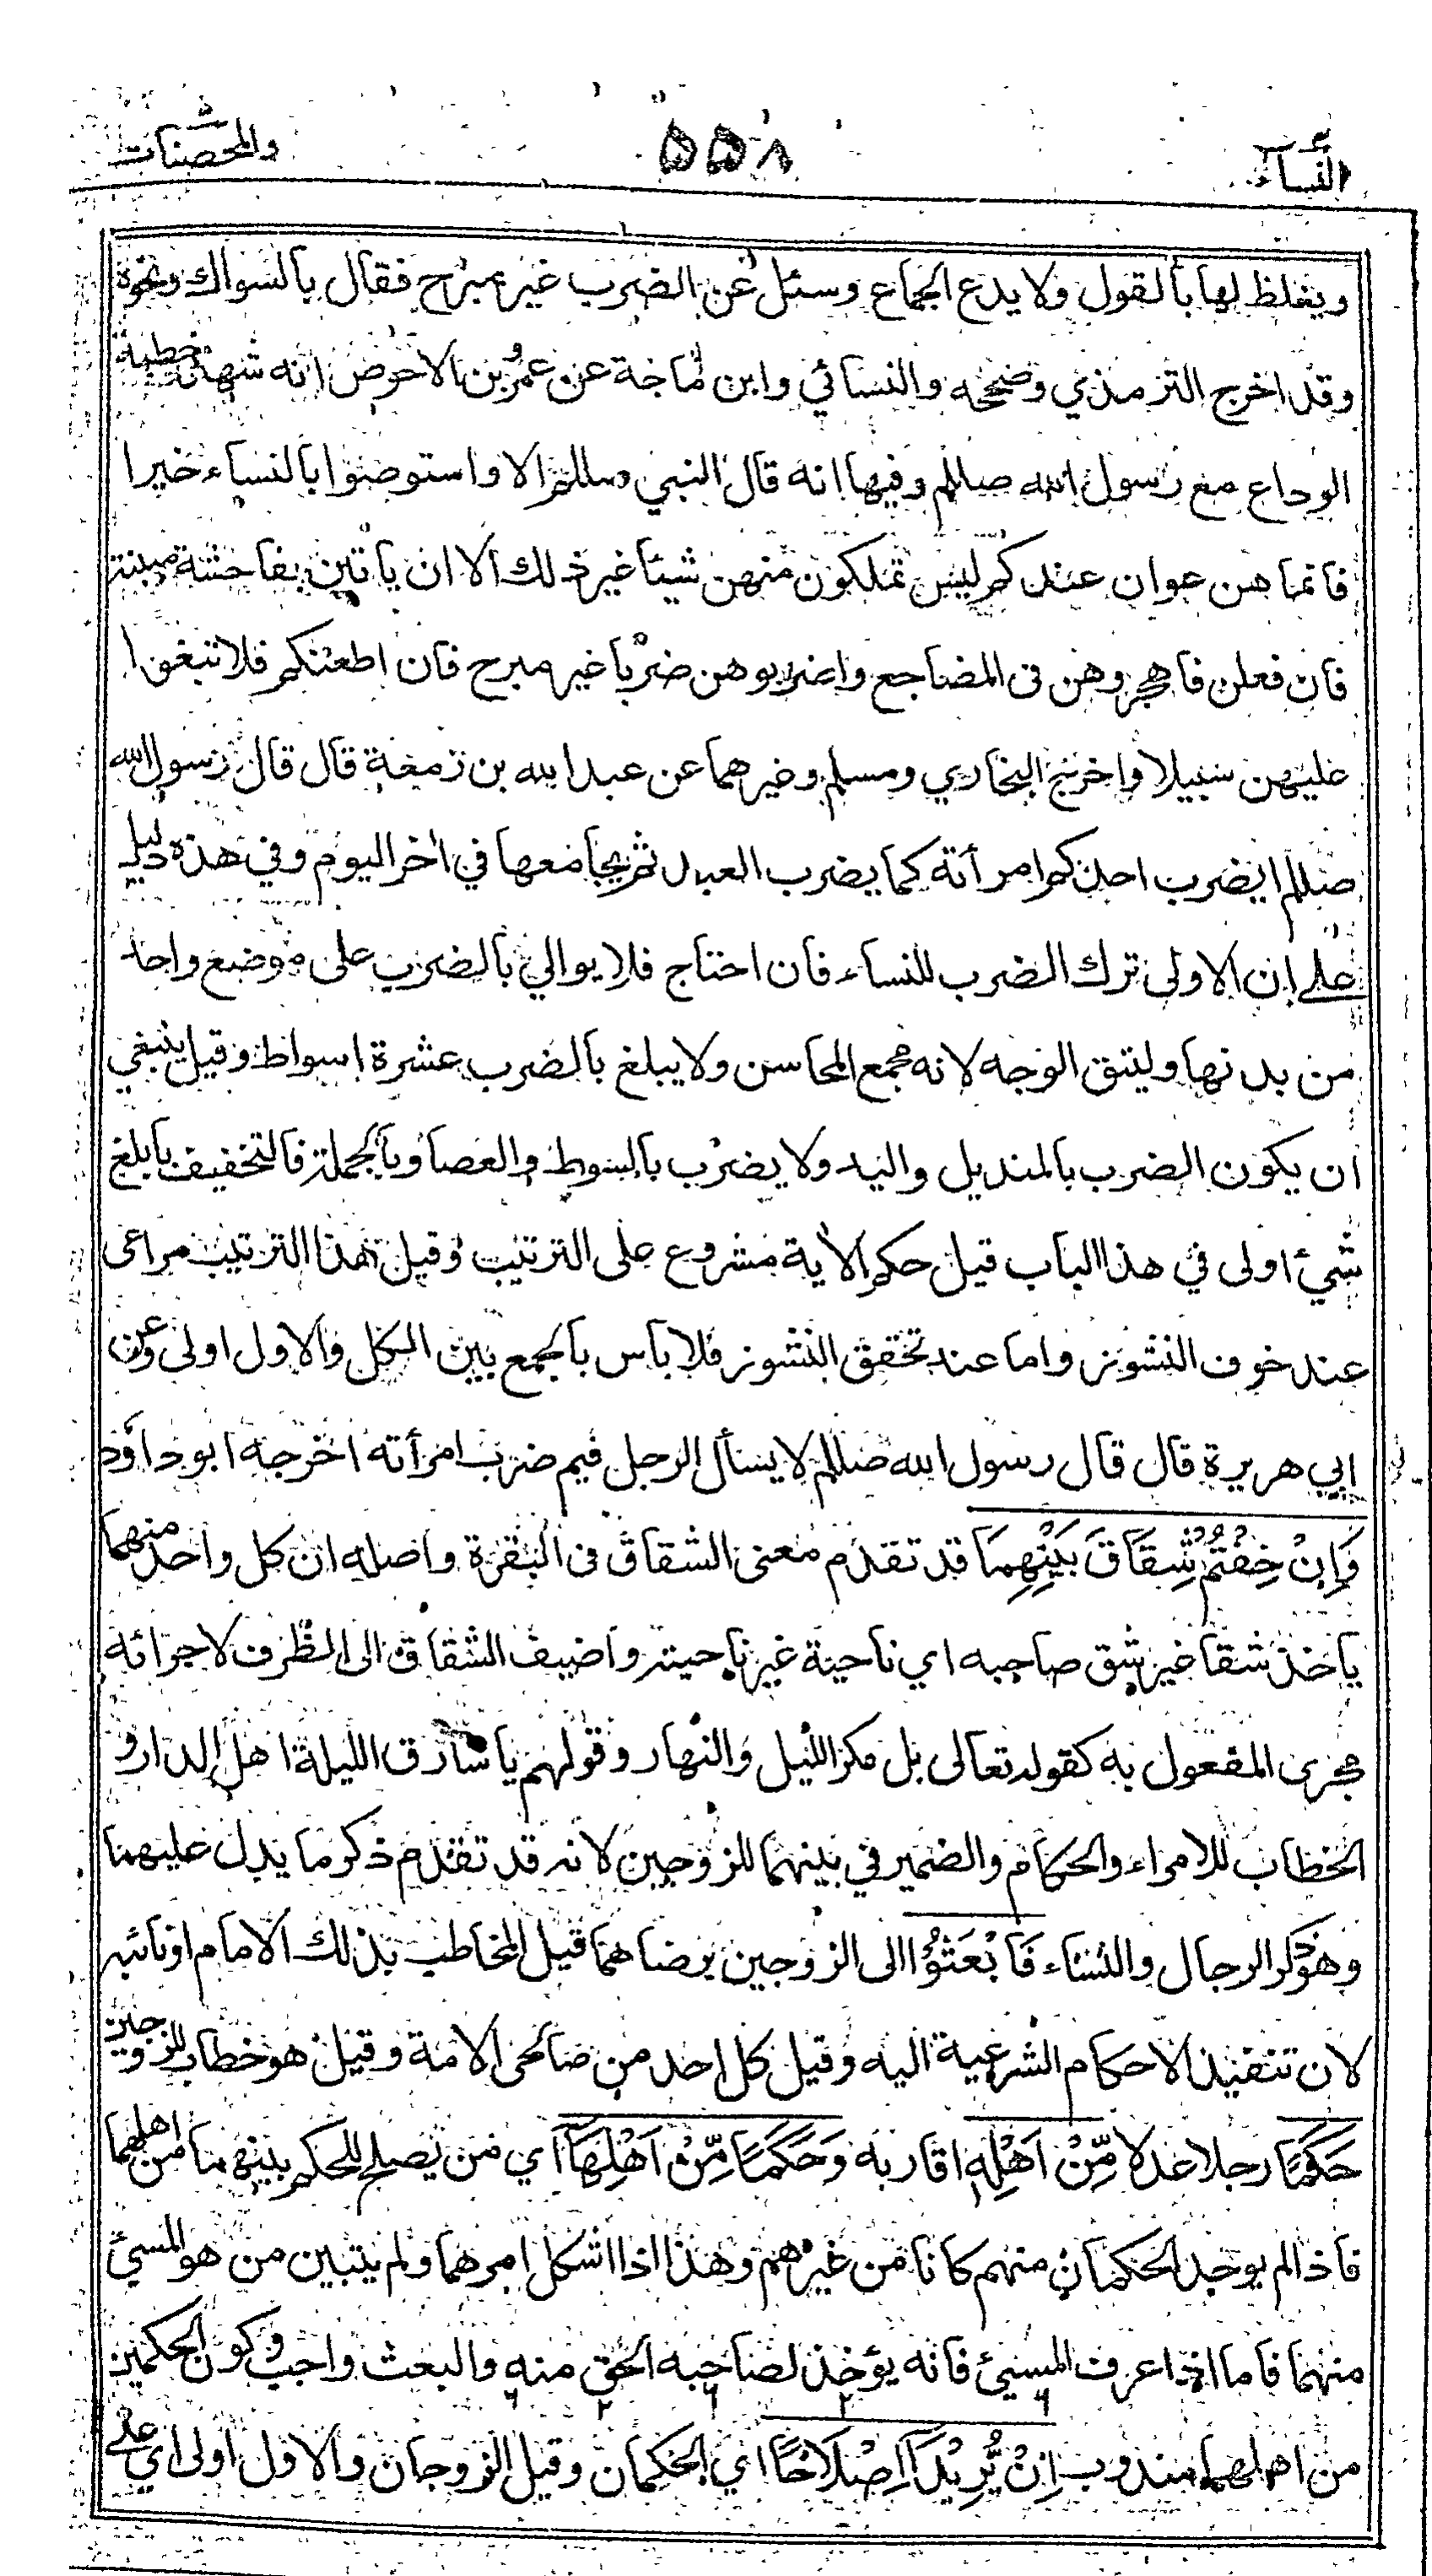 النسآء ٥٥٨ والمحصنات
ويغلظ لها بالقول ولا يدع الجماع وسئل عن الضرب غير مبرح فقال بالسواك ونحوه
وقد اخرج الترمذي وصححه والنسائي وابن ماجة عن عمرو بن الاحوص انه شهد خطبة
الوداع مع رسول الله صللم وفيها انه قال النبي صللم الا واستوصوا بالنساء خيرا
فانما هن عوان عندكم ليس تملكون منهن شيئا غير ذلك الا ان ياتين بفاحشة مبينة
فان فعلن فاهجروهن فى المضاجع واضربوهن ضربا غير مبرح فان اطعنكم فلا تبغوا
عليهن سبيلا واخرج البخاري ومسلم وغيرهما عن عبد الله بن زمعة قال قال رسول الله
صللم ايضرب احدكم امرأته كما يضرب العبد ثم يجامعها في اخر اليوم وفي هذه دليل
على ان الاولى ترك الضرب للنساء فان احتاج فلا يوالي بالضرب على موضع واحد
من بدنها وليتق الوجه لانه مجمع المحاسن ولا يبلغ بالضرب عشرة اسواط وقيل ينبغي
ان يكون الضرب بالمنديل واليد ولا يضرب بالسوط والعصا وبالجملة فالتخفيف بابلغ
شيء اولى في هذا الباب قيل حكم الاية مشروع على الترتيب وقيل هذا الترتيب مراعى
عند خوف النشوز واما عند تحقق النشوز فلا باس بالجمع بين الكل والاول اولى وعن
ابي هريرة قال قال رسول الله صللم لا يسأل الرجل فيم ضرب امرأته اخرجه ابو داؤد
وَاِنْ خِفْتُمْ شِقَاقَ بَيْنِهِمَا قد تقدم معنى الشقاق فى البقرة واصله ان كل واحد منهما
ياخذ شقا غير شق صاحبه اي ناحية غير ناحيته واضيف الشقاق الى الظرف لاجرائه
مجرى المفعول به كقوله تعالى بل مكر الليل والنهار وقولهم يا سارق الليلة اهل الدار و
الخطاب للامراء والحكام والضمير في بينهما للزوجين لانه قد تقدم ذكر ما يدل عليهما
وهو ذكر الرجال والنساء فَابْعَثُوْا الى الزوجين برضاهما قيل المخاطب بذلك الامام او نائبه
لان تنفيذ الاحكام الشرعية اليه وقيل كل احد من صالحى الامة وقيل هو خطاب للزوجين
حَكَمًا رجلا عدلا مِّنْ اَهْلِهٖ اقاربه وَحَكَمًا مِّنْ اَهْلِهَا اي من يصلح للحكم بينهما من اهلهما
فاذا لم يوجد الحكمان منهم كانا من غيرهم وهذا اذا اشكل امرهما ولم يتبين من هو المسيئ
منهما فاما اذا عرف المسيئ فانه يؤخذ لصاحبه الحق منه والبعث واجب وكون الحكمين
من اهلهما مندوب اِنْ يُّرِيْدَا اِصْلَاحًا اي الحكمان وقيل الزوجان والاول اولى اي على